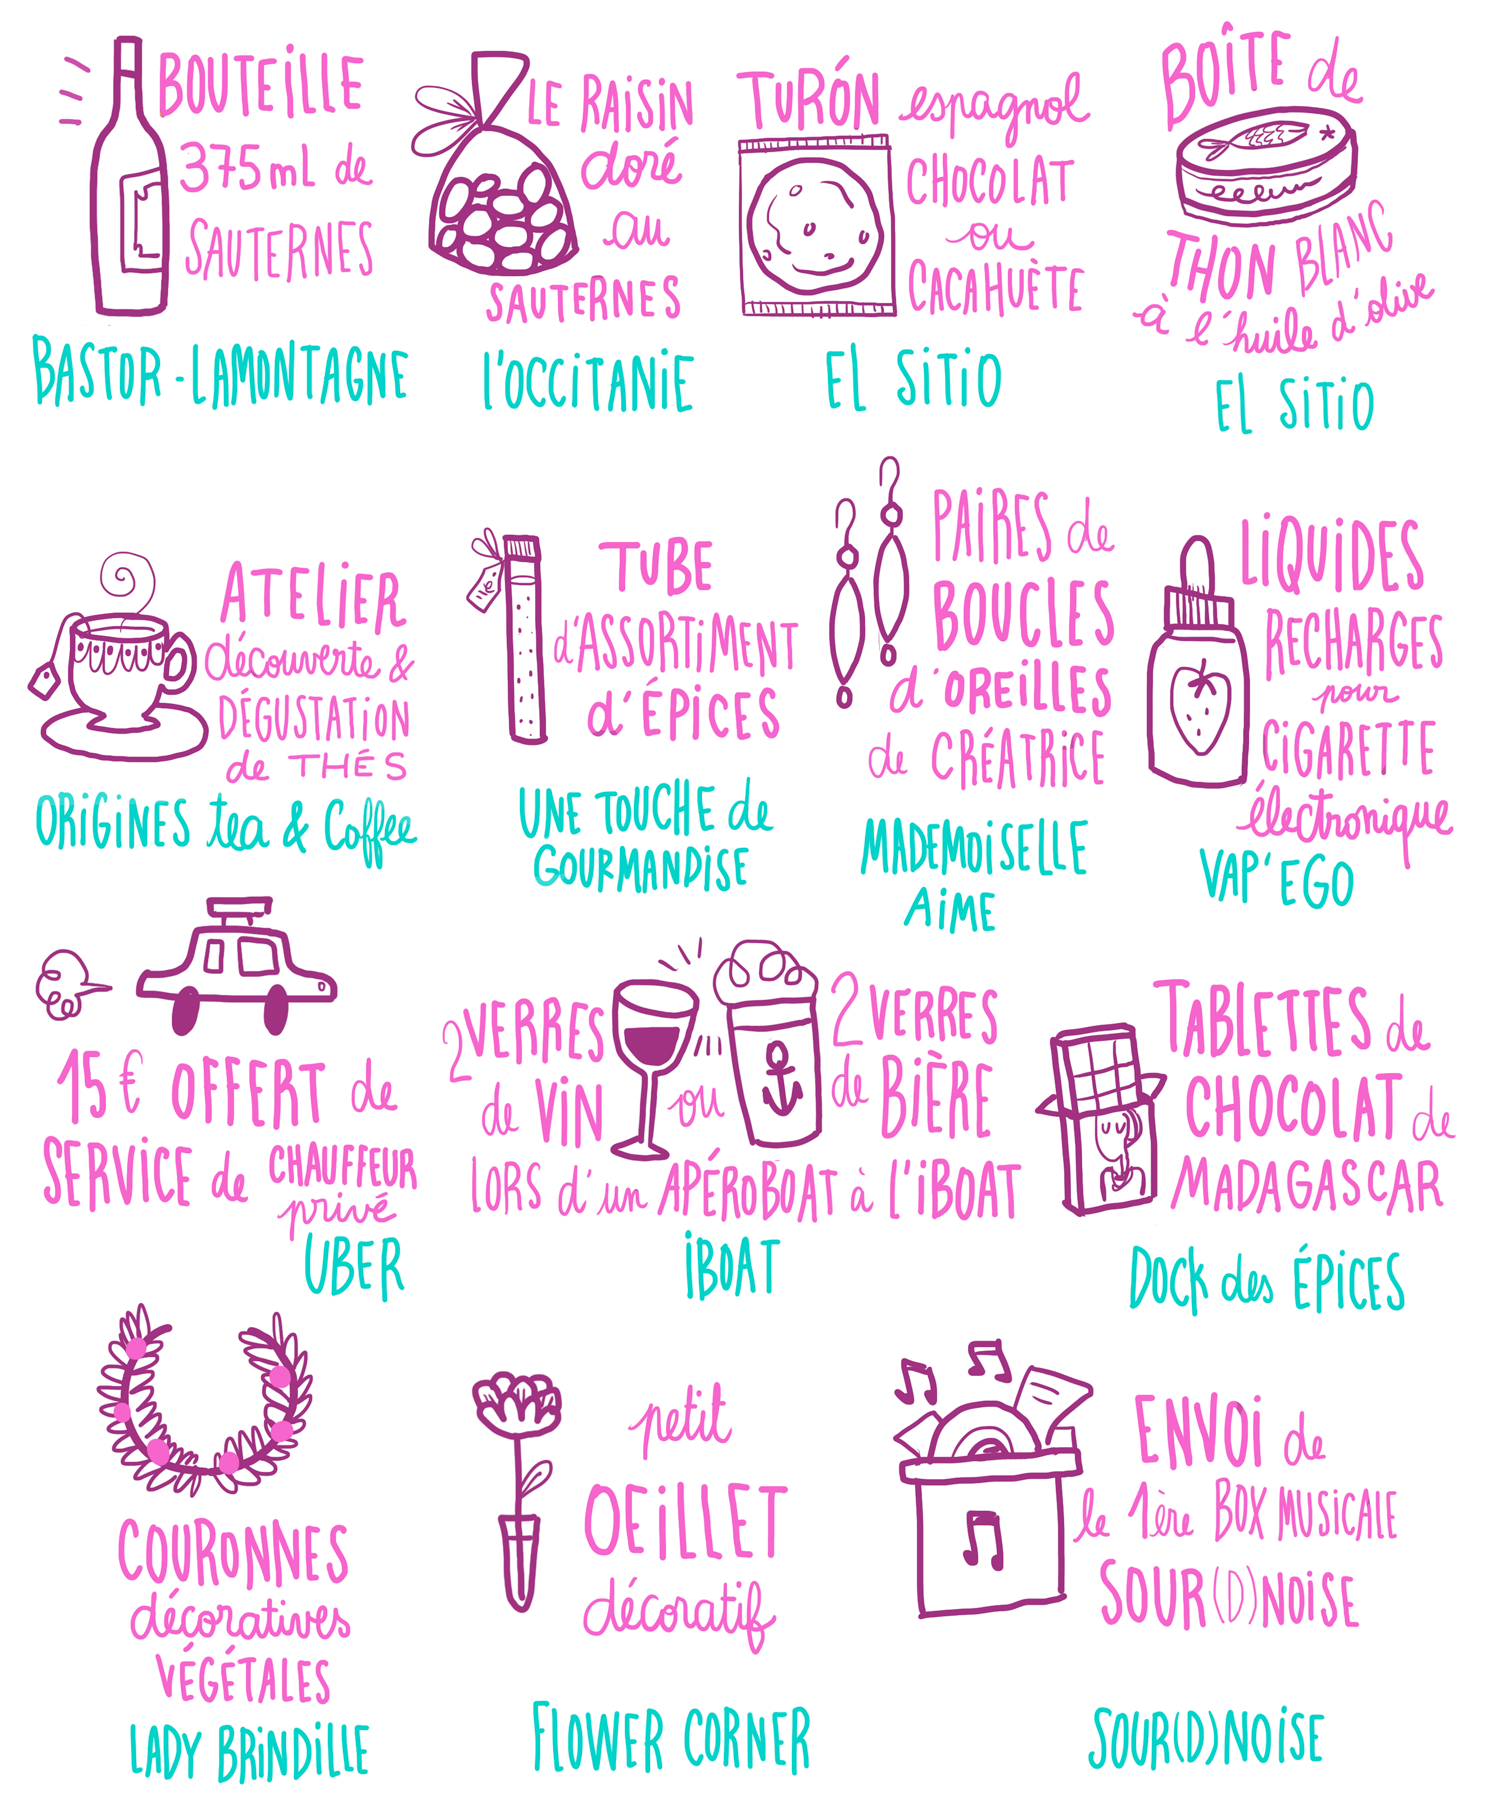 BOUTEILLE
375ml de
SAUTERNES
BASTOR-LAMONTAGNE
LE RAISIN
doré
au
SAUTERNES
L'OCCITANIE
TURÓN espagnol
CHOCOLAT
ou
CACAHUÈTE
EL SITIO
BOÎTE de
THON BLANC
à l'huile d'olive
EL SITIO
ATELIER
découverte &
DÉGUSTATION
de THÉS
ORIGINES tea & Coffee
TUBE
d'ASSORTIMENT
d'ÉPICES
UNE TOUCHE de
GOURMANDISE
PAIRES de
BOUCLES
d'OREILLES
de CRÉATRICE
MADEMOISELLE
AIME
LIQUIDES
RECHARGES
pour
CIGARETTE
électronique
VAP'EGO
15€ OFFERT de
SERVICE de CHAUFFEUR
privé
UBER
2 VERRES
de VIN
ou
2 VERRES
de BIÈRE
LORS d'un APÉROBOAT à l'IBOAT
IBOAT
TABLETTES de
CHOCOLAT de
MADAGASCAR
DOCK des ÉPICES
COURONNES
décoratives
VÉGÉTALES
LADY BRINDILLE
petit
OEILLET
décoratif
FLOWER CORNER
ENVOI de
la 1ère BOX MUSICALE
SOUR(D)NOISE
SOUR(D)NOISE